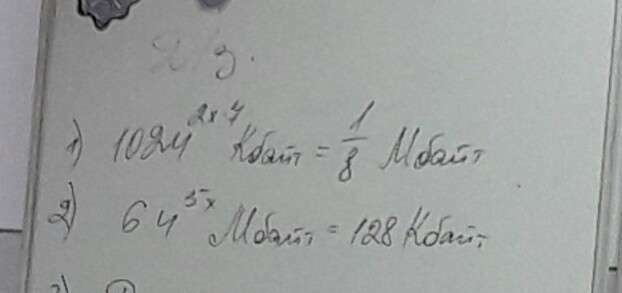 1) 1024^{2x7} Кбайт = 1/8 Мбайт
2) 64^{5x} Мбайт = 128 Кбайт